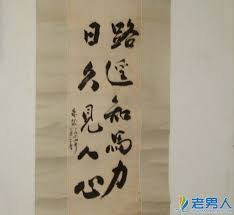 路遥知馬力
日久見人心
老男人